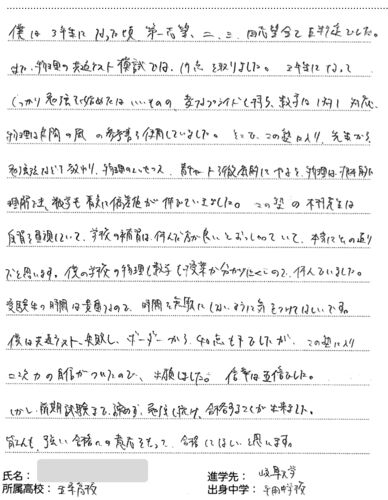 僕は3年生になった頃、第一志望、二、三、四志望全てE判定でした。
また、物理の共通テスト模試では、19点を取りました。3年生になって
しっかり勉強で始めたはいいものの、変なプライドも持ち、数学は1対1対応、
物理は良問の風の参考書を使用していました。そこで、この塾に入り、先生から
勉強法などを教わり、物理のエッセンス、
理解でき、数学も着実に偏差値が伸びていきました。この塾の木村先生は
反復を重視していて、学校の補習は、行かない方が良いとおっしゃっていて、本当にその通り
だと思います。僕の学校の物理と数学も授業が分かりにくいので、悩んでいました。
受験生の時間は貴重なので、時間を無駄にしないように気をつけてほしいです。
僕は共通テスト失敗し、ボーダーから40点も下でしたが、この塾に入り
二次力の自信がついたので、出願しました。倍率は五倍でした。
しかし、前期試験まで、諦めず、勉強し抜け、合格することが出来ました。
皆さんも、強い合格への意志をもって、合格してほしいと思います。
氏名：
所属高校：
進学先：岐阜大学
出身中学：